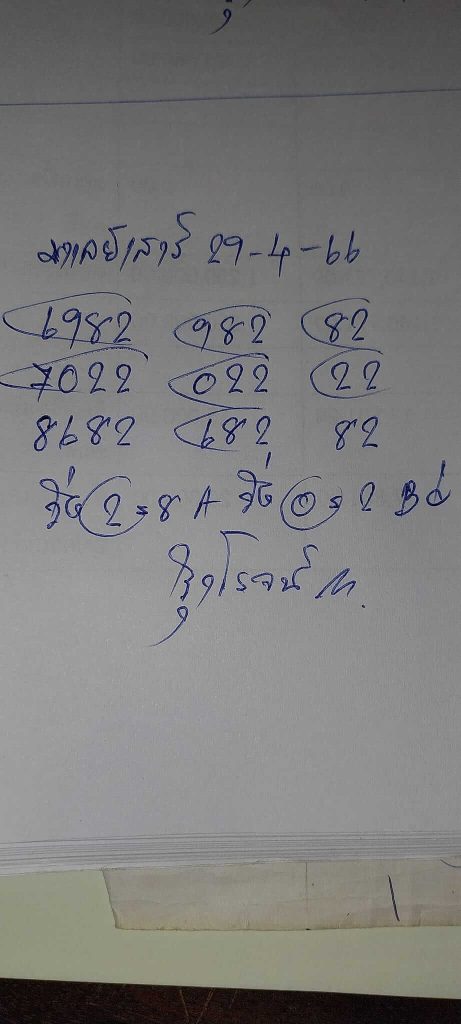 มาเลย์เสาร์ 29-4-66
6982 982 82
7022 022 22
8682 682 82
วิ่ง 2 = 8 A วิ่ง 0 = 2 B
โรจน์ M.